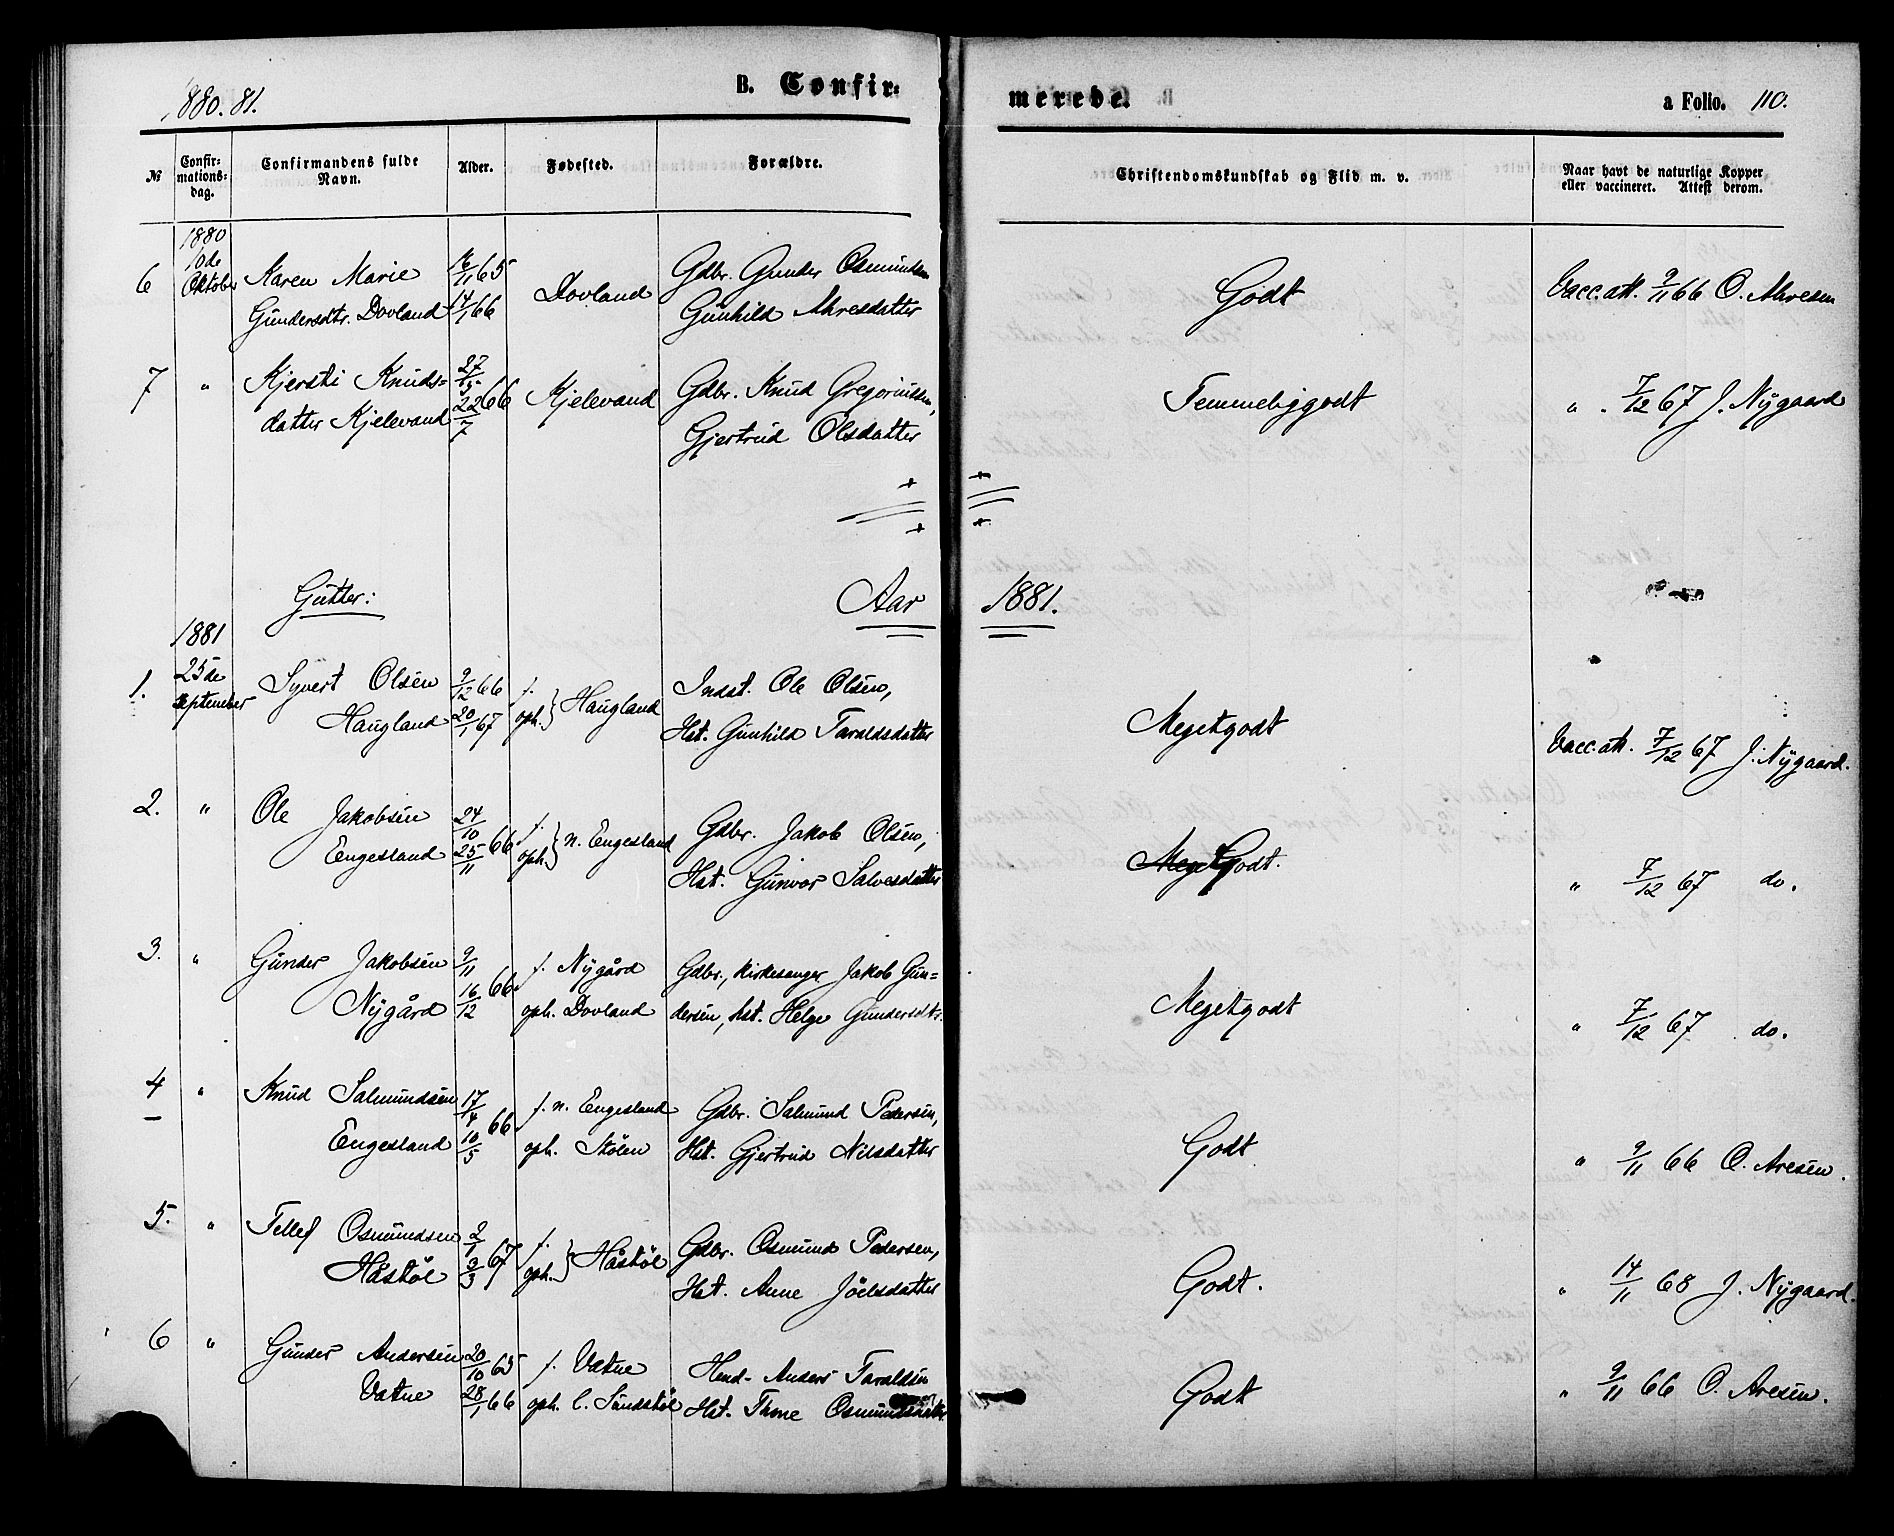 1880. 81.
B. Confirmerede.
a Folio. 110.
№
Confirmationsdag.
Confirmandens fulde Navn.
Alder.
Fødested.
Forældre.
Christendomskundskab og Flid m. v.
Naar havt de naturlige Kopper eller vaccineret. Attest derom.
1880
10de
6 Oktober Karen Marie 16/11 65 Dovland Gdbr. Gunder Osmundsen Godt Vacc.att. 9/11 66 O. Ahresen
Gundersdtr. Dovland 14/1 66 Gunhild Ahresdatter
7 " Kjersti Knuds= 27/5 66 Kjelevand Gdbr. Knud Gregoriussen, Temmeliggodt " . 7/12 67 J. Nygaard
datter Kjelevand 22/7 Gjertrud Olsdatter
Gutter: Aar 1881.
1881
1. 25de Syvert Olsen 9/12 66 f. Haugland Indst. Ole Olsen, Megetgodt Vacc.att. 7/12 67 J. Nygaard.
September Haugland 20/1 67 oph. Hst. Gunhild Taraldsdatter
2. " Ole Jakobsen 24/10 66 f. n. Engesland Gdbr. Jakob Olsen, Meget Godt. " 7/12 67 do.
Engesland 25/11 oph. Hst. Gunvor Salvesdatter
3. " Gunder Jakobsen 9/11 66 f. Nygård Gdbr., Kirkesanger Jakob Gun= Megetgodt " 7/12 67 do.
Nygård 16/12 oph. Dovland dersen, hst. Helge Gundersdtr.
4 " Knud Salmundsen 17/4 66 f. n. Engesland Gdbr. Salmund Pedersen, Godt " 9/11 66 O. Aresen.
Engesland 10/5 oph. Stølen Hst. Gjertrud Nilsdatter
5. " Tellef Osmundsen 2/1 67 f. Håstøl Gdbr. Osmund Pedersen, Godt. " 14/11 68 J. Nygaard.
Håstøl 3/3 oph. Hst. Anne Joelsdatter
6 " Gunder Andersen 20/10 65 f. Vatne Hmd. Anders Taraldsen Godt " 9/11 66 O. Aresen.
Vatne 28/1 66 oph. l. Sundstøl Hst. Thone Osmundsdatter